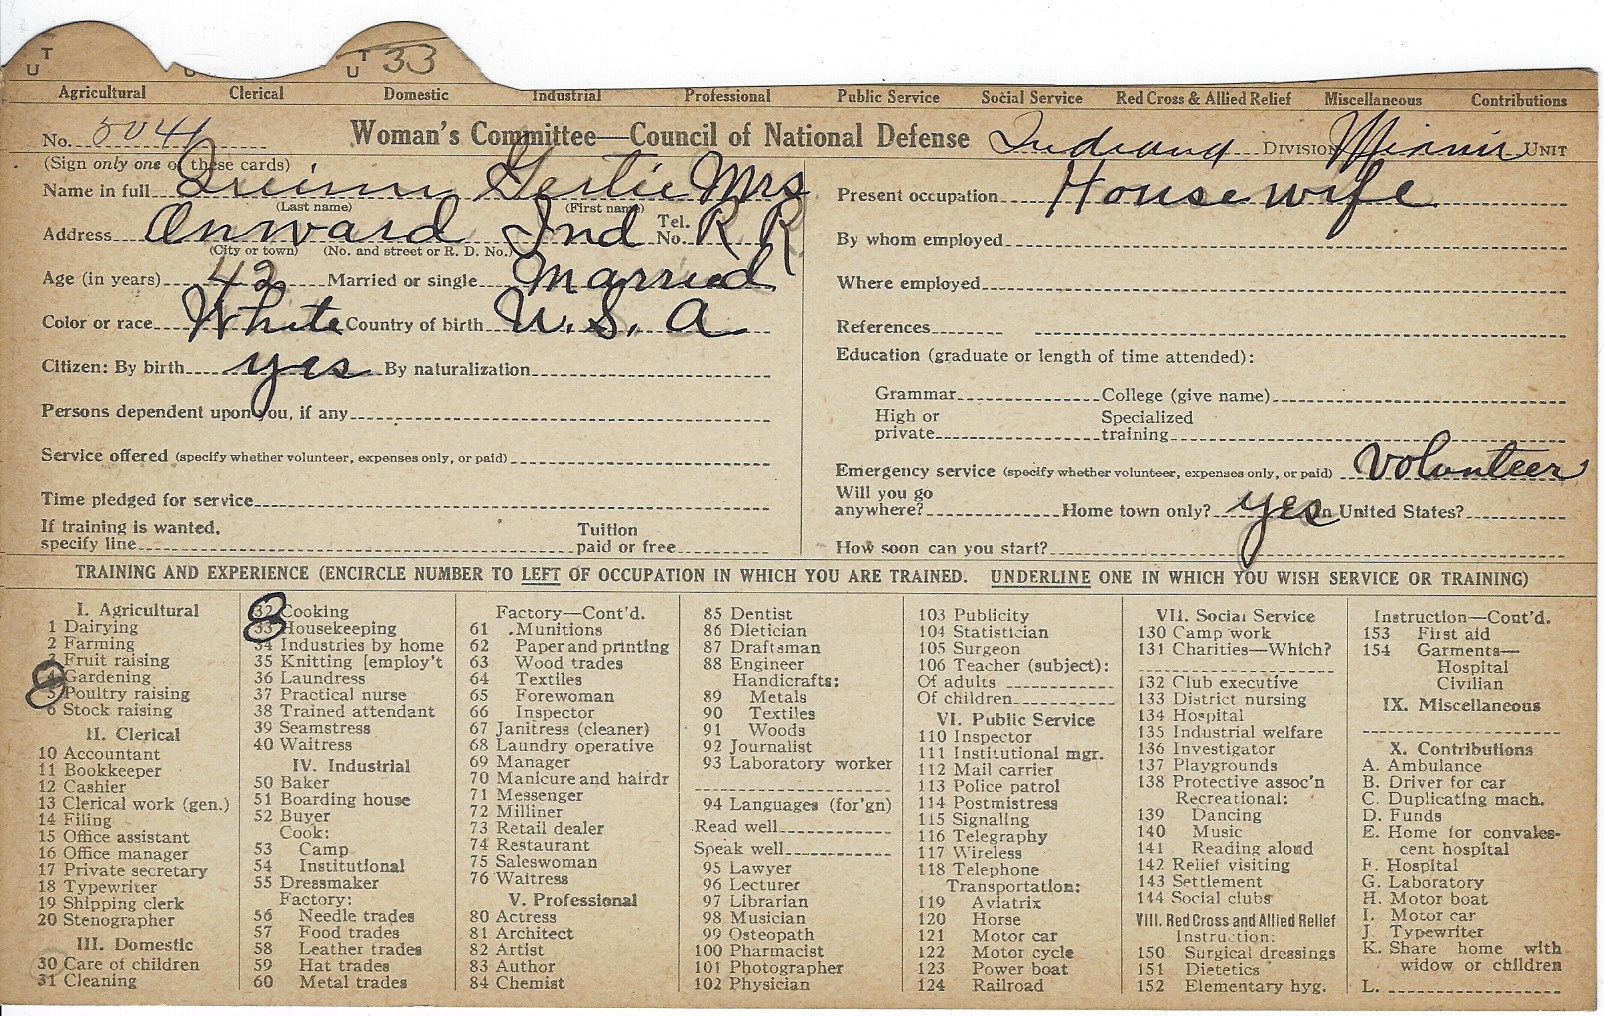 T U U T U 33
Agricultural Clerical Domestic Industrial Professional Public Service Social Service Red Cross & Allied Relief Miscellaneous Contributions
No. 5041 Woman's Committee—Council of National Defense Indiana DIVISION Miami UNIT
(Sign only one of these cards)
Name in full Gertie Mrs
(Last name) (First name)
Address Onward Ind Tel. No. R R
(City or town) (No. and street or R. D. No.)
Age (in years) 42 Married or single Married
Color or race White Country of birth U. S. A
Citizen: By birth yes By naturalization
Persons dependent upon you, if any
Service offered (specify whether volunteer, expenses only, or paid)
Time pledged for service
If training is wanted, specify line Tuition paid or free
Present occupation Housewife
By whom employed
Where employed
References
Education (graduate or length of time attended):
Grammar College (give name)
High or private Specialized training
Emergency service (specify whether volunteer, expenses only, or paid) Volunteer
Will you go anywhere? Home town only? yes In United States?
How soon can you start?
TRAINING AND EXPERIENCE (ENCIRCLE NUMBER TO LEFT OF OCCUPATION IN WHICH YOU ARE TRAINED. UNDERLINE ONE IN WHICH YOU WISH SERVICE OR TRAINING)
I. Agricultural
1 Dairying
2 Farming
3 Fruit raising
4 Gardening
5 Poultry raising
6 Stock raising
II. Clerical
10 Accountant
11 Bookkeeper
12 Cashier
13 Clerical work (gen.)
14 Filing
15 Office assistant
16 Office manager
17 Private secretary
18 Typewriter
19 Shipping clerk
20 Stenographer
III. Domestic
30 Care of children
31 Cleaning
32 Cooking
33 Housekeeping
34 Industries by home
35 Knitting [employ't
36 Laundress
37 Practical nurse
38 Trained attendant
39 Seamstress
40 Waitress
IV. Industrial
50 Baker
51 Boarding house
52 Buyer
Cook:
53 Camp
54 Institutional
55 Dressmaker
Factory:
56 Needle trades
57 Food trades
58 Leather trades
59 Hat trades
60 Metal trades
Factory—Cont'd.
61 Munitions
62 Paper and printing
63 Wood trades
64 Textiles
65 Forewoman
66 Inspector
67 Janitress (cleaner)
68 Laundry operative
69 Manager
70 Manicure and hairdr
71 Messenger
72 Milliner
73 Retail dealer
74 Restaurant
75 Saleswoman
76 Waitress
V. Professional
80 Actress
81 Architect
82 Artist
83 Author
84 Chemist
85 Dentist
86 Dietician
87 Draftsman
88 Engineer
Handicrafts:
89 Metals
90 Textiles
91 Woods
92 Journalist
93 Laboratory worker
94 Languages (for'gn)
Read well
Speak well
95 Lawyer
96 Lecturer
97 Librarian
98 Musician
99 Osteopath
100 Pharmacist
101 Photographer
102 Physician
103 Publicity
104 Statistician
105 Surgeon
106 Teacher (subject):
Of adults
Of children
VI. Public Service
110 Inspector
111 Institutional mgr.
112 Mail carrier
113 Police patrol
114 Postmistress
115 Signaling
116 Telegraphy
117 Wireless
118 Telephone
Transportation:
119 Aviatrix
120 Horse
121 Motor car
122 Motor cycle
123 Power boat
124 Railroad
VII. Social Service
130 Camp work
131 Charities—Which?
132 Club executive
133 District nursing
134 Hospital
135 Industrial welfare
136 Investigator
137 Playgrounds
138 Protective assoc'n
Recreational:
139 Dancing
140 Music
141 Reading aloud
142 Relief visiting
143 Settlement
144 Social clubs
VIII. Red Cross and Allied Relief
Instruction:
150 Surgical dressings
151 Dietetics
152 Elementary hyg.
Instruction—Cont'd.
153 First aid
154 Garments—
Hospital
Civilian
IX. Miscellaneous
X. Contributions
A. Ambulance
B. Driver for car
C. Duplicating mach.
D. Funds
E. Home for convales-
cent hospital
F. Hospital
G. Laboratory
H. Motor boat
I. Motor car
J. Typewriter
K. Share home with
widow or children
L.